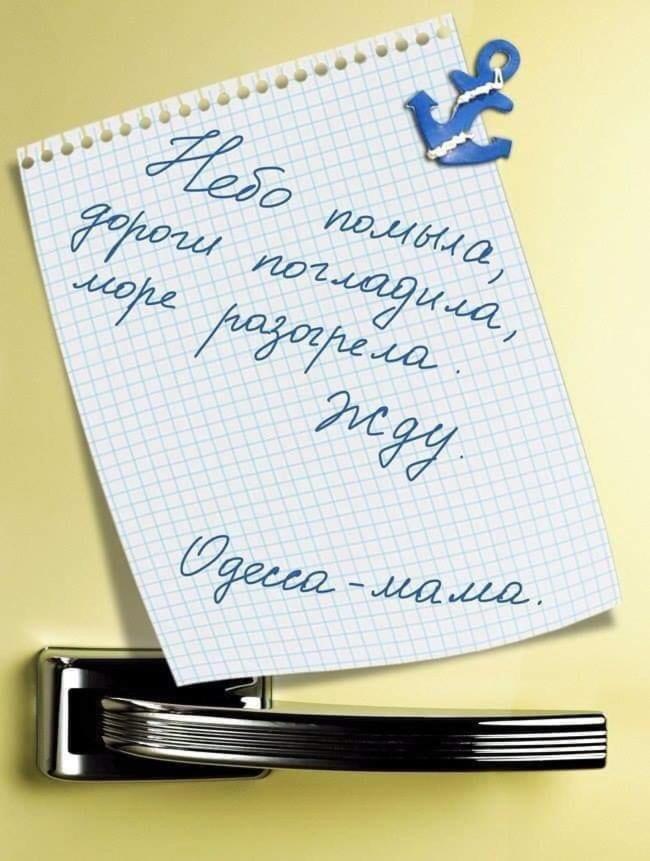 Небо помыла,
дороги погладила,
море разогрела.
Жду.
Одесса-мама.